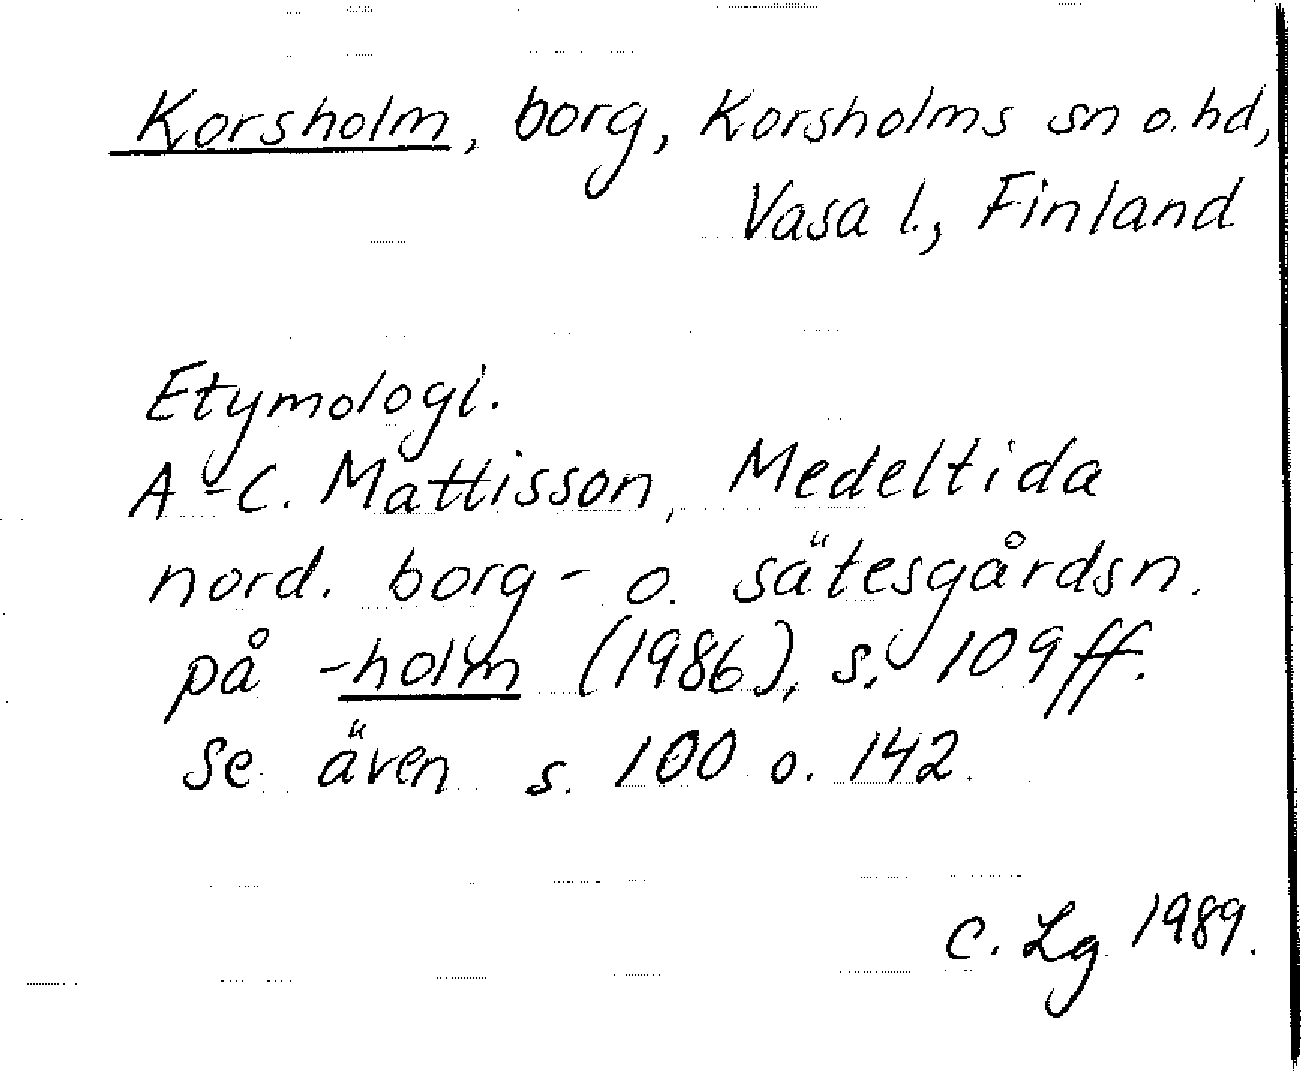 Korsholm, borg, Korsholms sn o. hd,
Vasa l., Finland
Etymologi.
A-C. Mattisson, Medeltida
nord. borg- o. sätesgårdsn.
på -holm (1986), s. 109 ff.
Se även s. 100 o. 142.
C. Lg 1989.